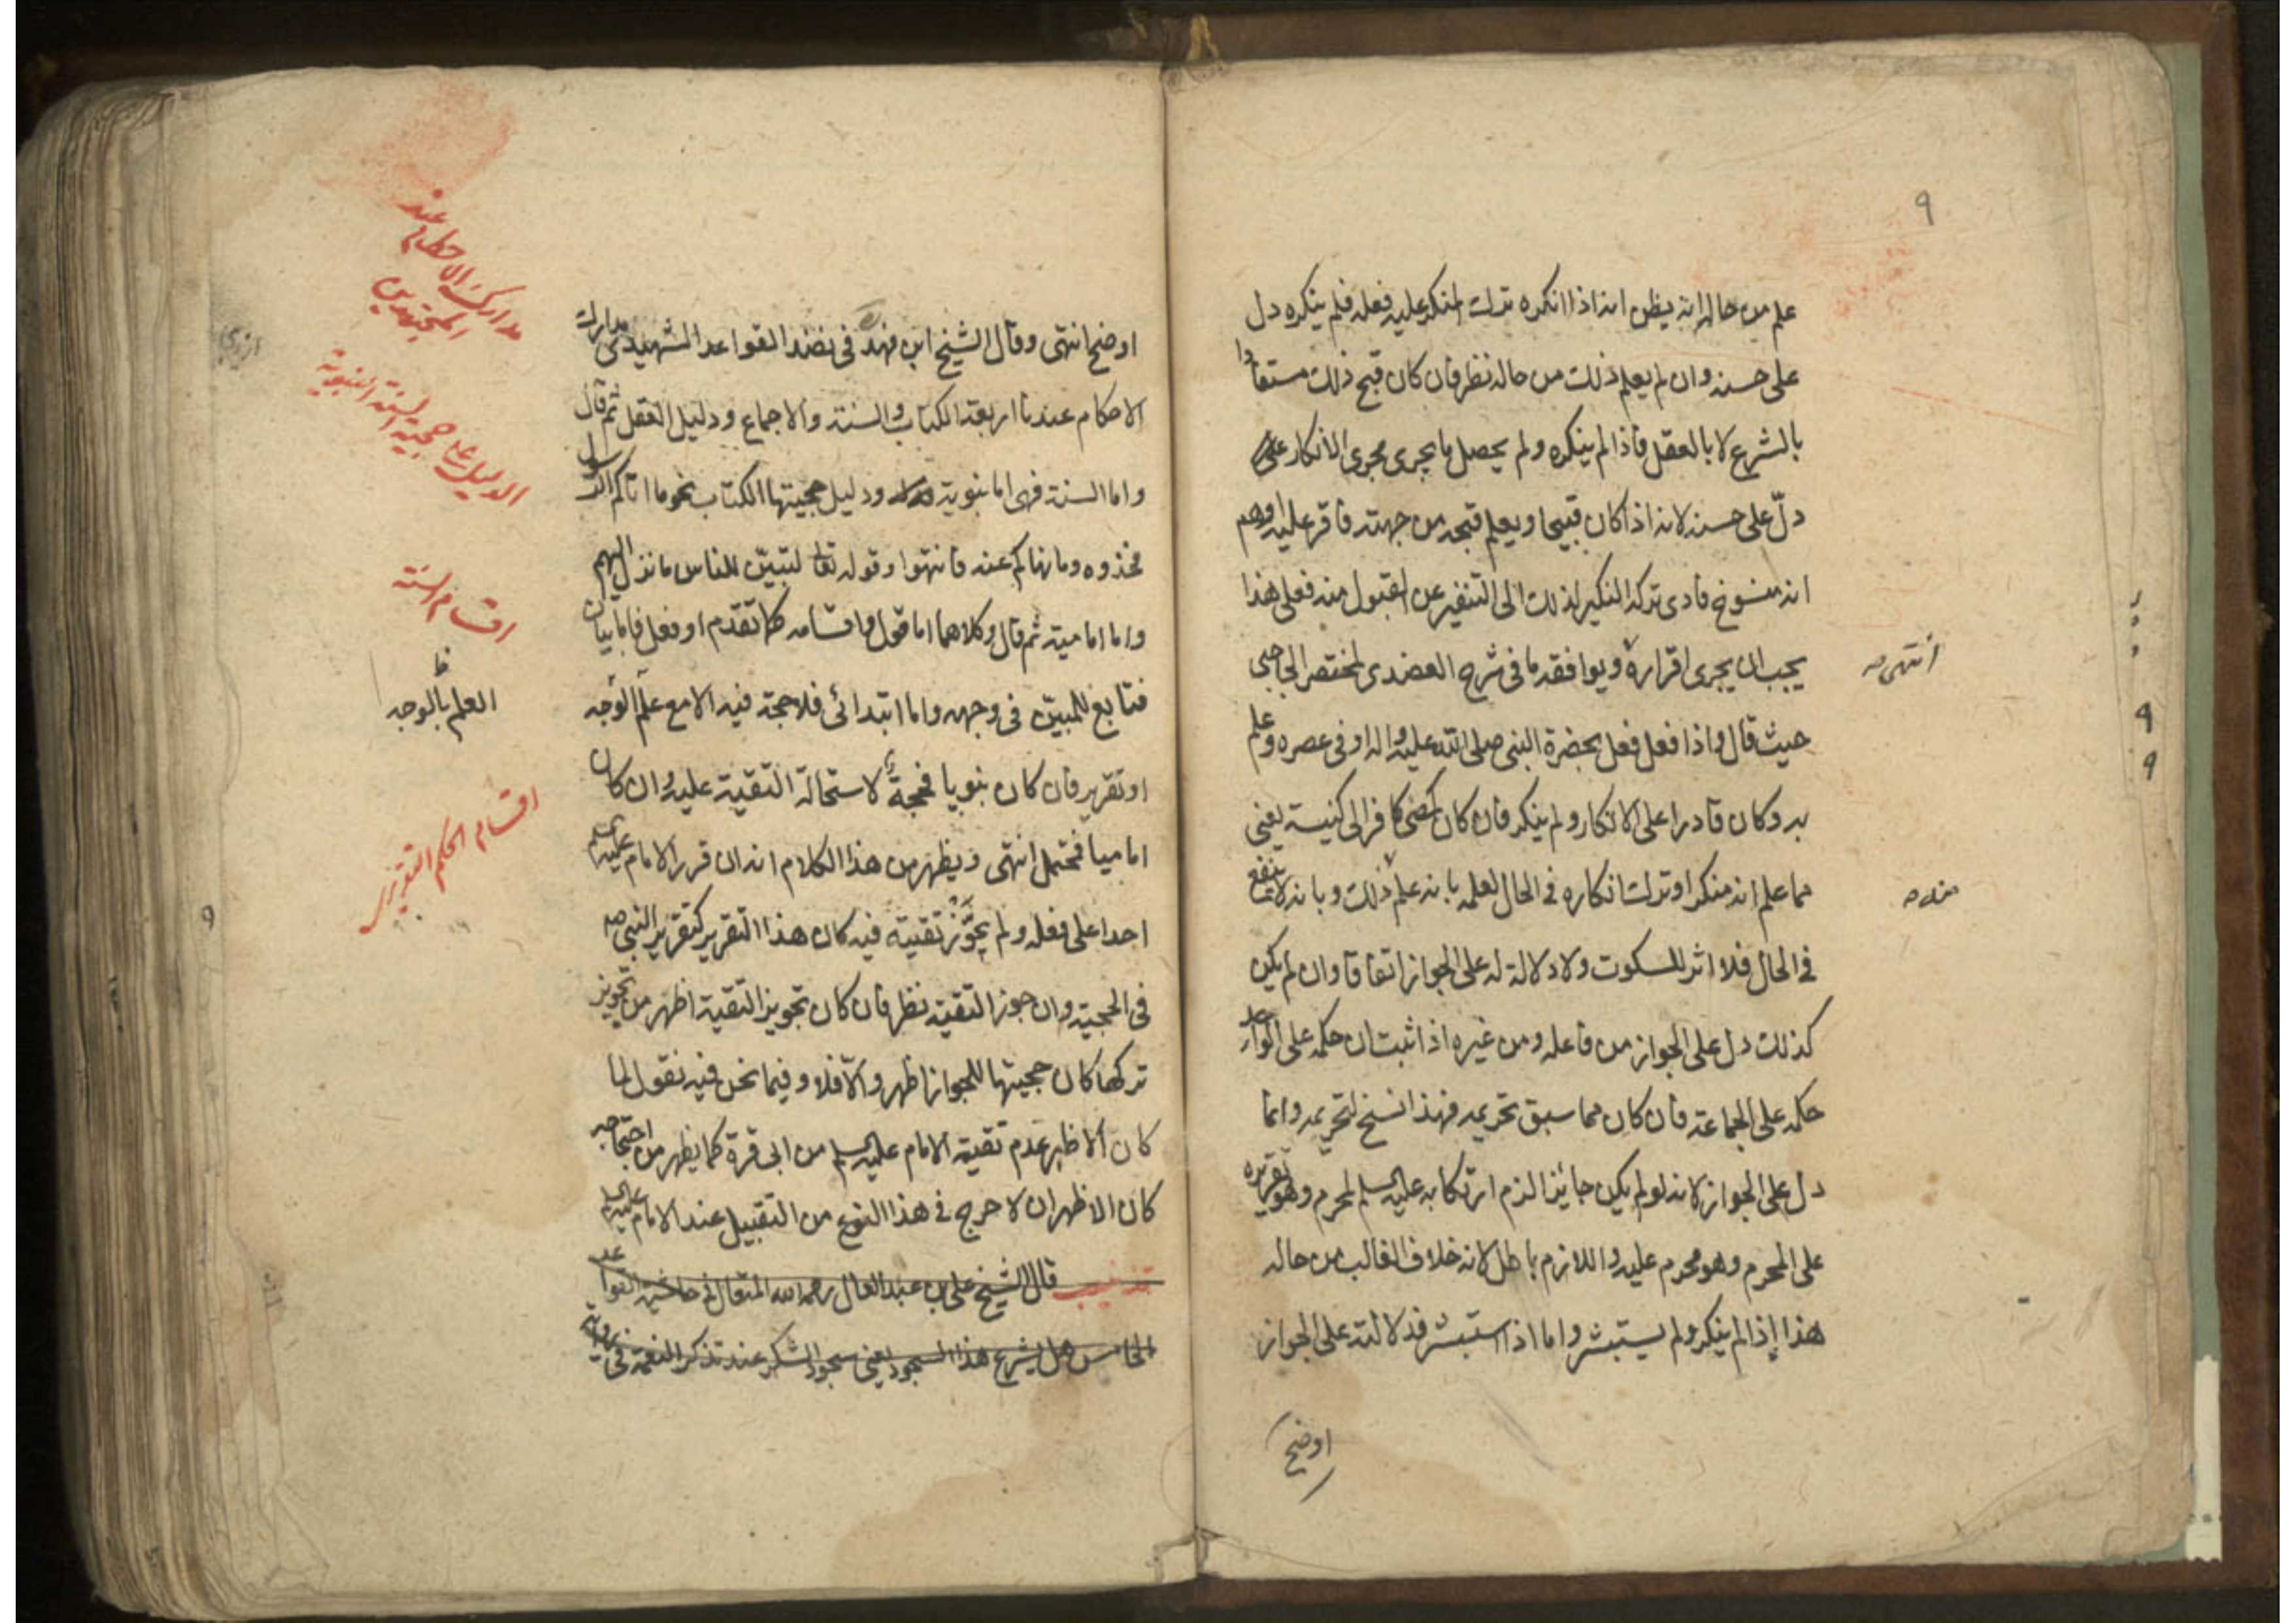 ٩
علم من حاله انه يظن انه اذا انكره ترك المنكر عليه فعله فلم ينكره دل
على حسنه وان لم يعلم ذلك من حاله نظر فان كان قبح ذلك مستفادا
بالشرع لا بالعقل فاذا لم ينكره ولم يحصل ما يجرى مجرى الانكار
دلّ على حسنه لانه اذا كان قبيحا ويعلم قبحه من جهته فاقر عليه اوهم
انه منسوخ فادى تركه النكير لذلك الى التنفير عن القبول منه فعلى هذا
يجب ان يجرى اقراره ويوافقه ما فى شرح العضدى لمختصر الحاجبى
انتهى صه
حيث قال واذا فعل فعل بحضرة النبى صلى الله عليه واله او فى عصره وعلم
به وكان قادرا على الانكار ولم ينكر فان كان كمضى كافر الى كنيسة يعنى
مما علم انه منكر او ترك انكاره فى الحال لعلمه بانه علم ذلك وبانه لا ينفع
منه صه
فى الحال فلا اثر للسكوت ولا دلالة له على الجواز اتفاقا وان لم يكن
كذلك دل على الجواز من فاعله ومن غيره اذا ثبت ان حكمه على الواحد
حكمه على الجماعة فان كان مما سبق تحريمه فهذا نسخ لتحريمه وانما
دل على الجواز لانه لو لم يكن جائزا لزم ارتكابه عليه السلم لمحرم وهو تقريره
على المحرم وهو محرم عليه واللازم باطل لانه خلاف الغالب من حاله
هذا إذا لم ينكر ولم يستبشر واما اذا استبشر فدلالته على الجواز
اوضح
اوضح انتهى وقال الشيخ ابن فهد فى نضد القواعد الشهيدى مدارك
مدارك الاحكام عند
المجتهدين
الاحكام عندنا اربعة الكتاب والسنة والاجماع ودليل العقل ثم قال
الدليل على حجية السنة النبوية
واما السنة فهى اما نبوية ودليل حجيتها الكتاب نحو ما اتاكم الرسول
فخذوه وما نهاكم عنه فانتهوا وقوله تعا لتبيّن للناس ما نزل اليهم
اقسام السنة
واما امامية ثم قال وكلاهما اما قول واقسامه كما تقدّم او فعل فاما بيان
فتابع للمبيّن فى وجهه واما ابتدائى فلا حجة فيه الا مع علم الوجه
العلم بالوجه
او تقرير فان كان نبويا فحجة لاستحالة التقية عليه وان كان
اقسام الحكم التقريرى
اماميا فمحتمل انتهى ويظهر من هذا الكلام انه ان قرر الامام عليه السلم
احدا على فعله ولم يجوّز تقية فيه كان هذا التقرير كتقرير النبى صه
٩
فى الحجية وان جوز التقية نظر فان كان تجويز التقية اظهر من تجويز
تركها كان حجيتها للجواز اظهر والّا فلا وفيما نحن فيه نقول لما
كان الاظهر عدم تقية الامام عليه السلم من ابى قرة كما يظهر من احتجاجه
كان الاظهر ان لا حرج فى هذا النوع من التقبيل عند الامام عليه السلم
تذنيب قال الشيخ على بن عبد العال رحمه الله المتعال فى حاشية القواعد
الخامس هل يشرع هذا السجود يعنى سجود الشكر عند تذكر النعمة